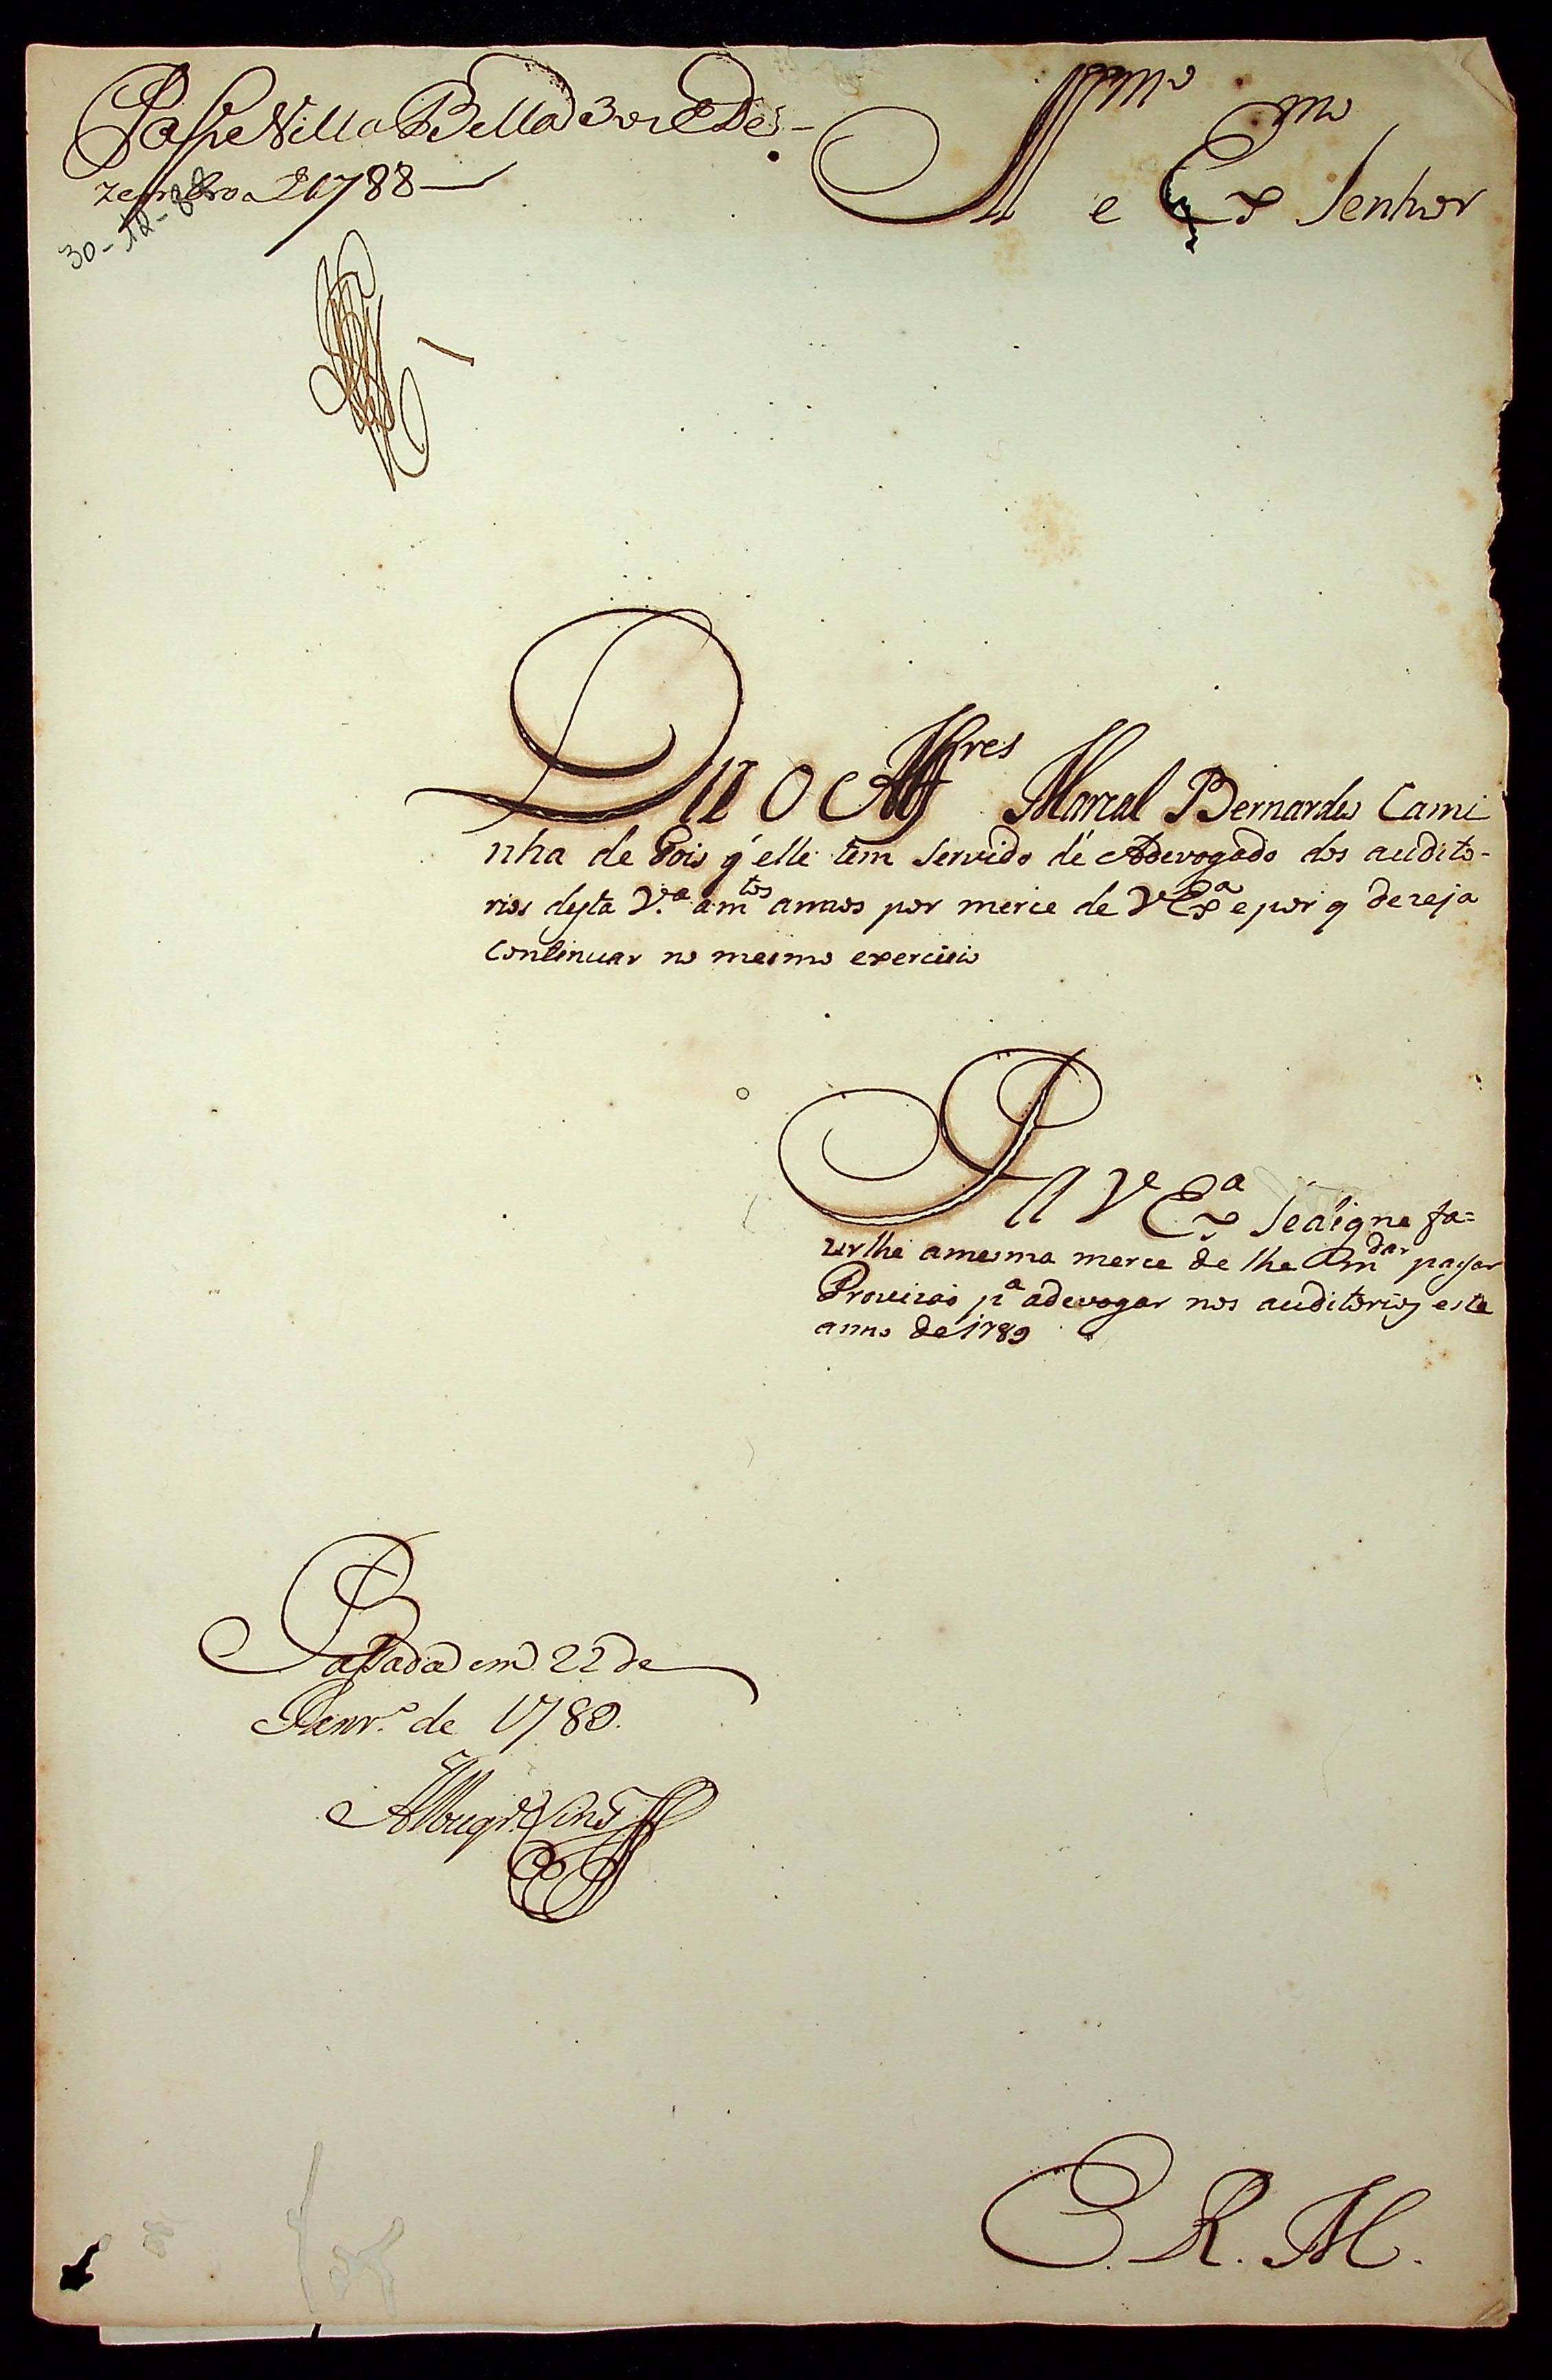 Passe Villa Bella 30 de De-
zembro de 1788
30-12-88
Ill.mo e Ex.mo Senhor
Diz o Alferes Marcal Bernardes Cami
nha de Gois q' elle tem servido de Adevogado dos audito-
rios desta V.a a m.tos annos por merce de V Ex.a e por q dezeja
continuar no mesmo exercicio
P a V Ex.a se digne fa=
zerlhe a mesma merce de lhe m.dar pasar
Provizaõ p.a adevogar nos auditorios este
anno de 1789
Passada em 22 de
Janr.o de 1789.
E. R. M.